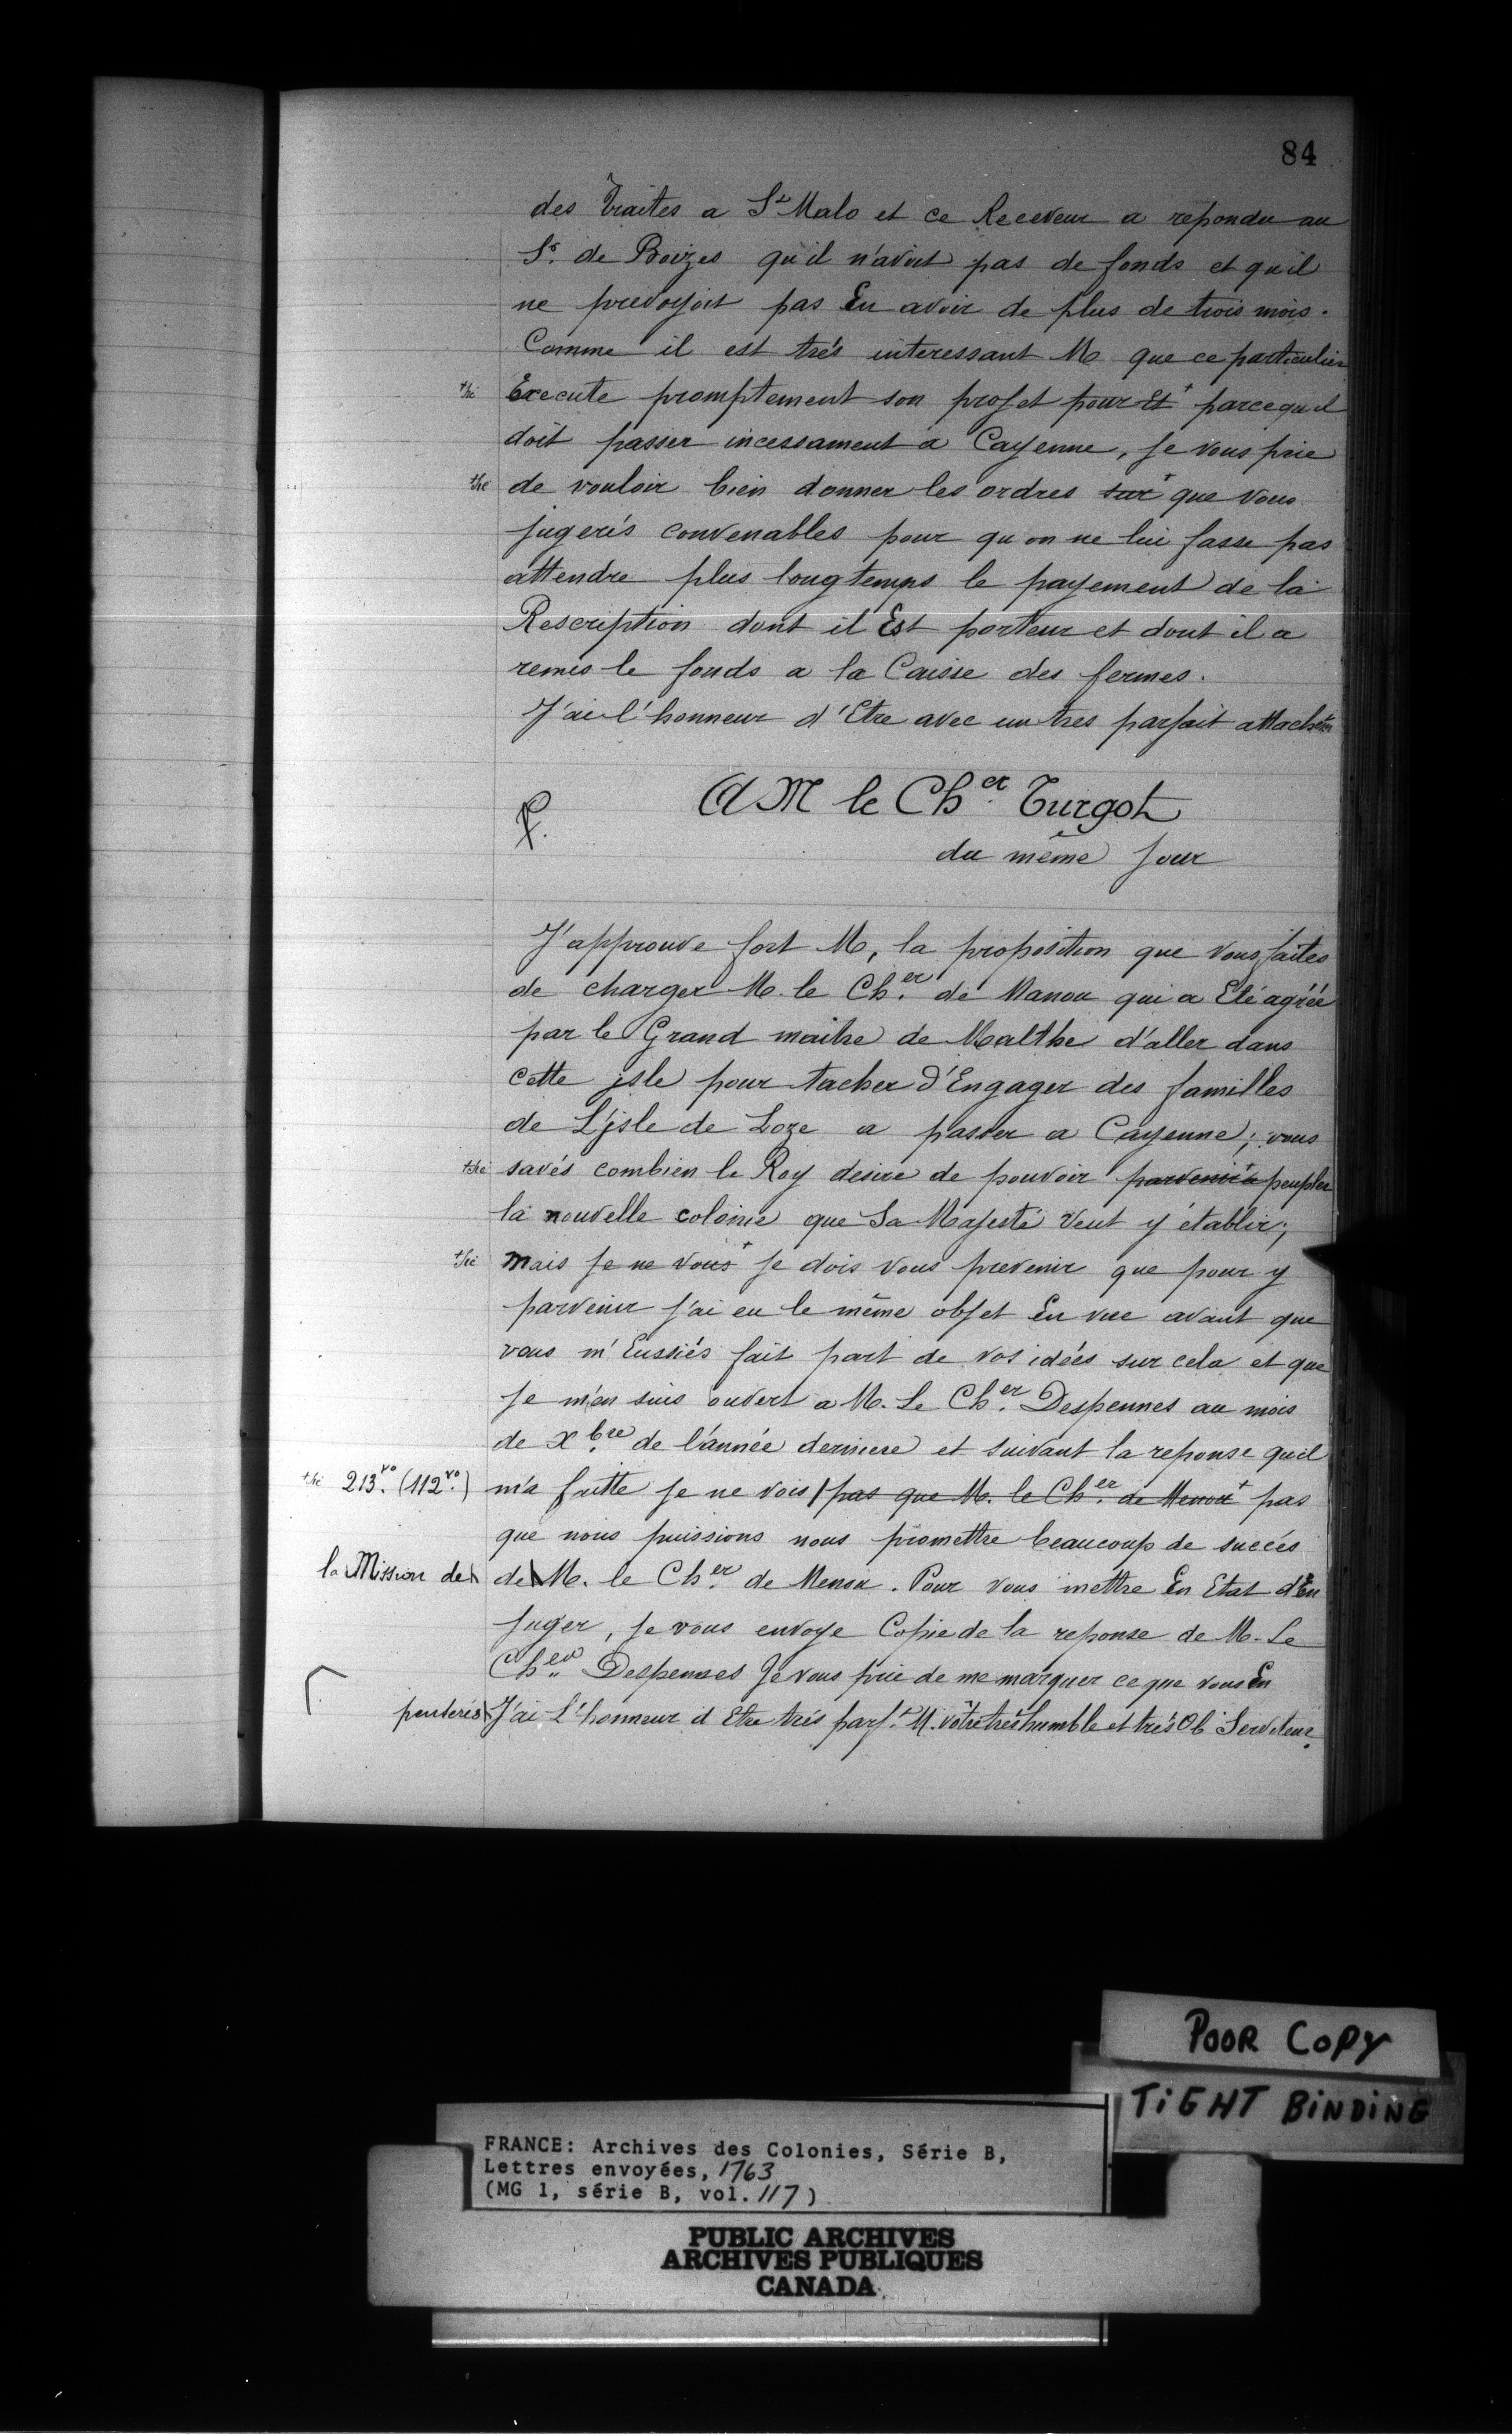 84
des Traites a St Malo et ce Receveur a repondu au
Sr. de Boizes qu'il n'avoit pas de fonds et quil
ne prevoyoit pas En avoir de plus de trois mois.
Comme il est trés interessant M que ce particulier
Execute promptement son projet pour Et + parcequil
doit passer incessament a Cayenne, je vous prie
de vouloir bien donner les ordres sur + que vous
jugerés convenables pour qu'on ne lui fasse pas
attendre plus longtemps le payement de la
Rescription dont il Est porteur et dont il a
remis le fonds a la Caisse des fermes.
J'ai l'honneur d'Etre avec un tres parfait attachem
A M le Cher. Turgot
du même jour
J'approuve fort M, la proposition que vous faites
de charger M. le Cher. de Manou qui a Eté agréé
par le Grand maitre de Malthe d'aller dans
cette jsle pour tacher d'Engager des familles
de L'jsle de Goze a passer a Cayenne; vous
savés combien le Roy desire de pouvoir parvenir + a peupler
la nouvelle colonie que Sa Majesté veut y établir;
mais je ne vous + je dois vous prevenir que pour y
parvenir j'ai eu le même objet En vue avant que
vous m'Eussiés fait part de vos idées sur cela et que
je m'en suis ouvert a M. Le Cher. Despennes au mois
de Xbre. de l'année derniere et suivant la reponse quil
213.vo (112.vo) m'a faitte je ne vois / pas que M. le Cher. de Menou + pas
que nous puissions nous promettre beaucoup de succés
la Mission de de M. le Cher. de Menou. Pour vous mettre En Etat d'En
juger, je vous envoye Copie de la reponse de M. Le
Cher. Despennes Je vous prie de me marquer ce que vous En
penserés J'ai L'honneur d Etre trés parft. M. votre tres humble et trés Ob Serviteur.
POOR COPY
TIGHT BINDING
FRANCE: Archives des Colonies, Série B,
Lettres envoyées, 1763
(MG 1, série B, vol. 117)
PUBLIC ARCHIVES
ARCHIVES PUBLIQUES
CANADA